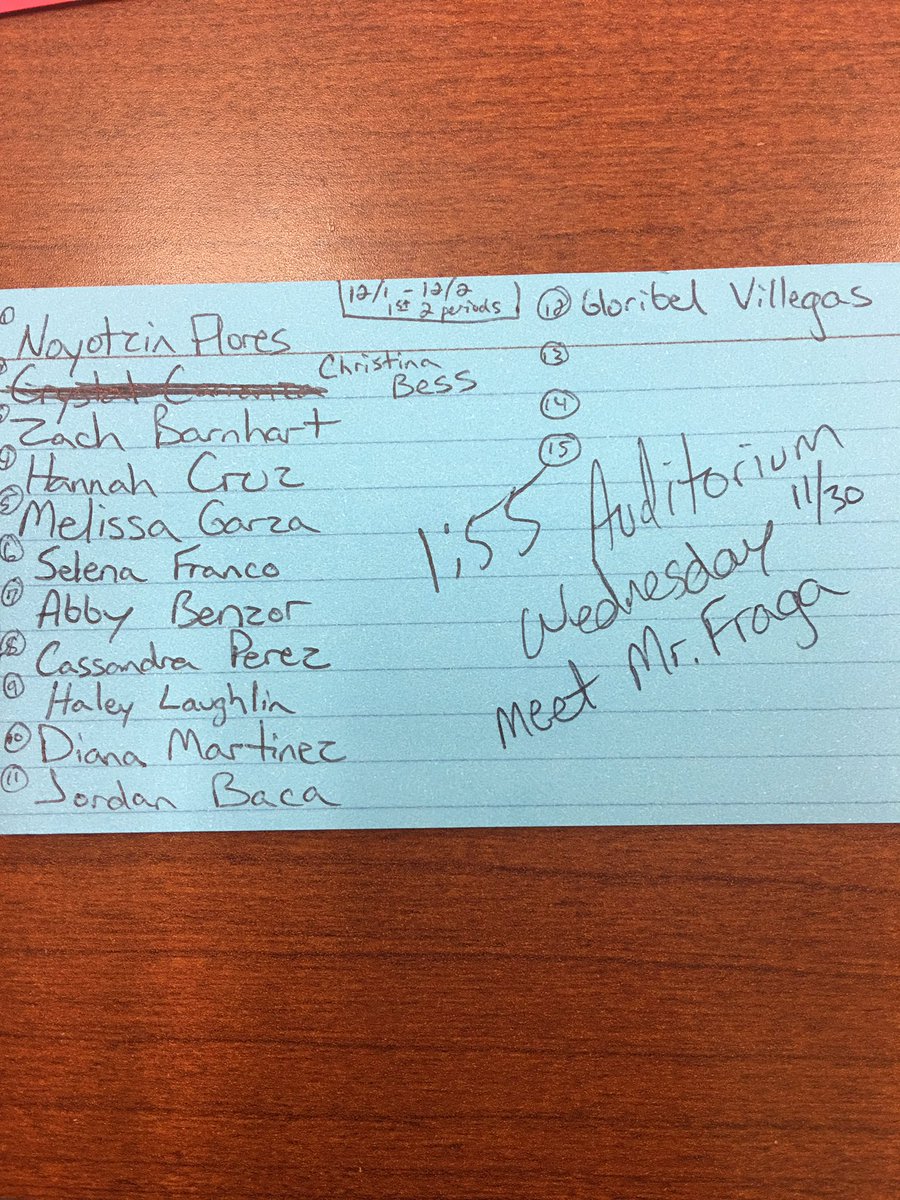 12/1 - 12/2
1st 2 periods
① Noyotzin Flores
Christina
Bess
Zach Barnhart
Hannah Cruz
⑤ Melissa Garza
⑥ Selena Franco
⑦ Abby Benzor
⑧ Cassandra Perez
⑨ Haley Laughlin
⑩ Diana Martinez
⑪ Jordan Baca
⑫ Gloribel Villegas
⑬
⑭
⑮
1:55 Auditorium
Wednesday 11/30
meet Mr. Fraga